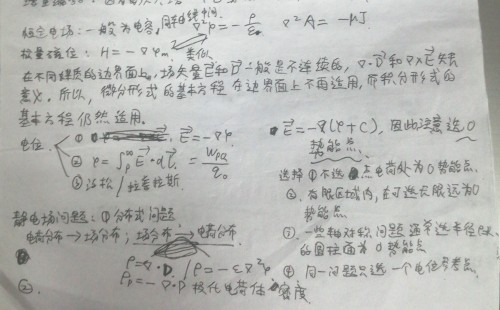 恒定电场:一般为电容,同轴线中间. ∇²φ = -ρ/ε₀ ∇²A = -μJ
标量磁位: H = -∇φm. 类似
在不同媒质的边界面上, 场矢量E和D一般是不连续的, ∇·D和∇×E失去
意义. 所以, 微分形式的基本方程在边界面上不再适用, 而积分形式的
基本方程仍然适用.
电位. ① E = -∇φ.
② φ = ∫E·dl = Wpa/q₀
③ 泊松/拉普拉斯.
E = -∇(φ+C), 因此注意选0
势能点.
选择①不选点电荷处为0势能点.
②. 有限区域内, 在可选无限远为0
势能点
③. 一些轴对称问题 通常选半径
的圆柱面为0势能点
④ 同一问题只选一个电位参考点.
静电场问题: ① 分布式问题
电荷分布→场分布; 场分布→电荷分布
ρ = ∇·D. / ρ = -ε∇²φ
ρp = -∇·P 极化电荷体密度
②.